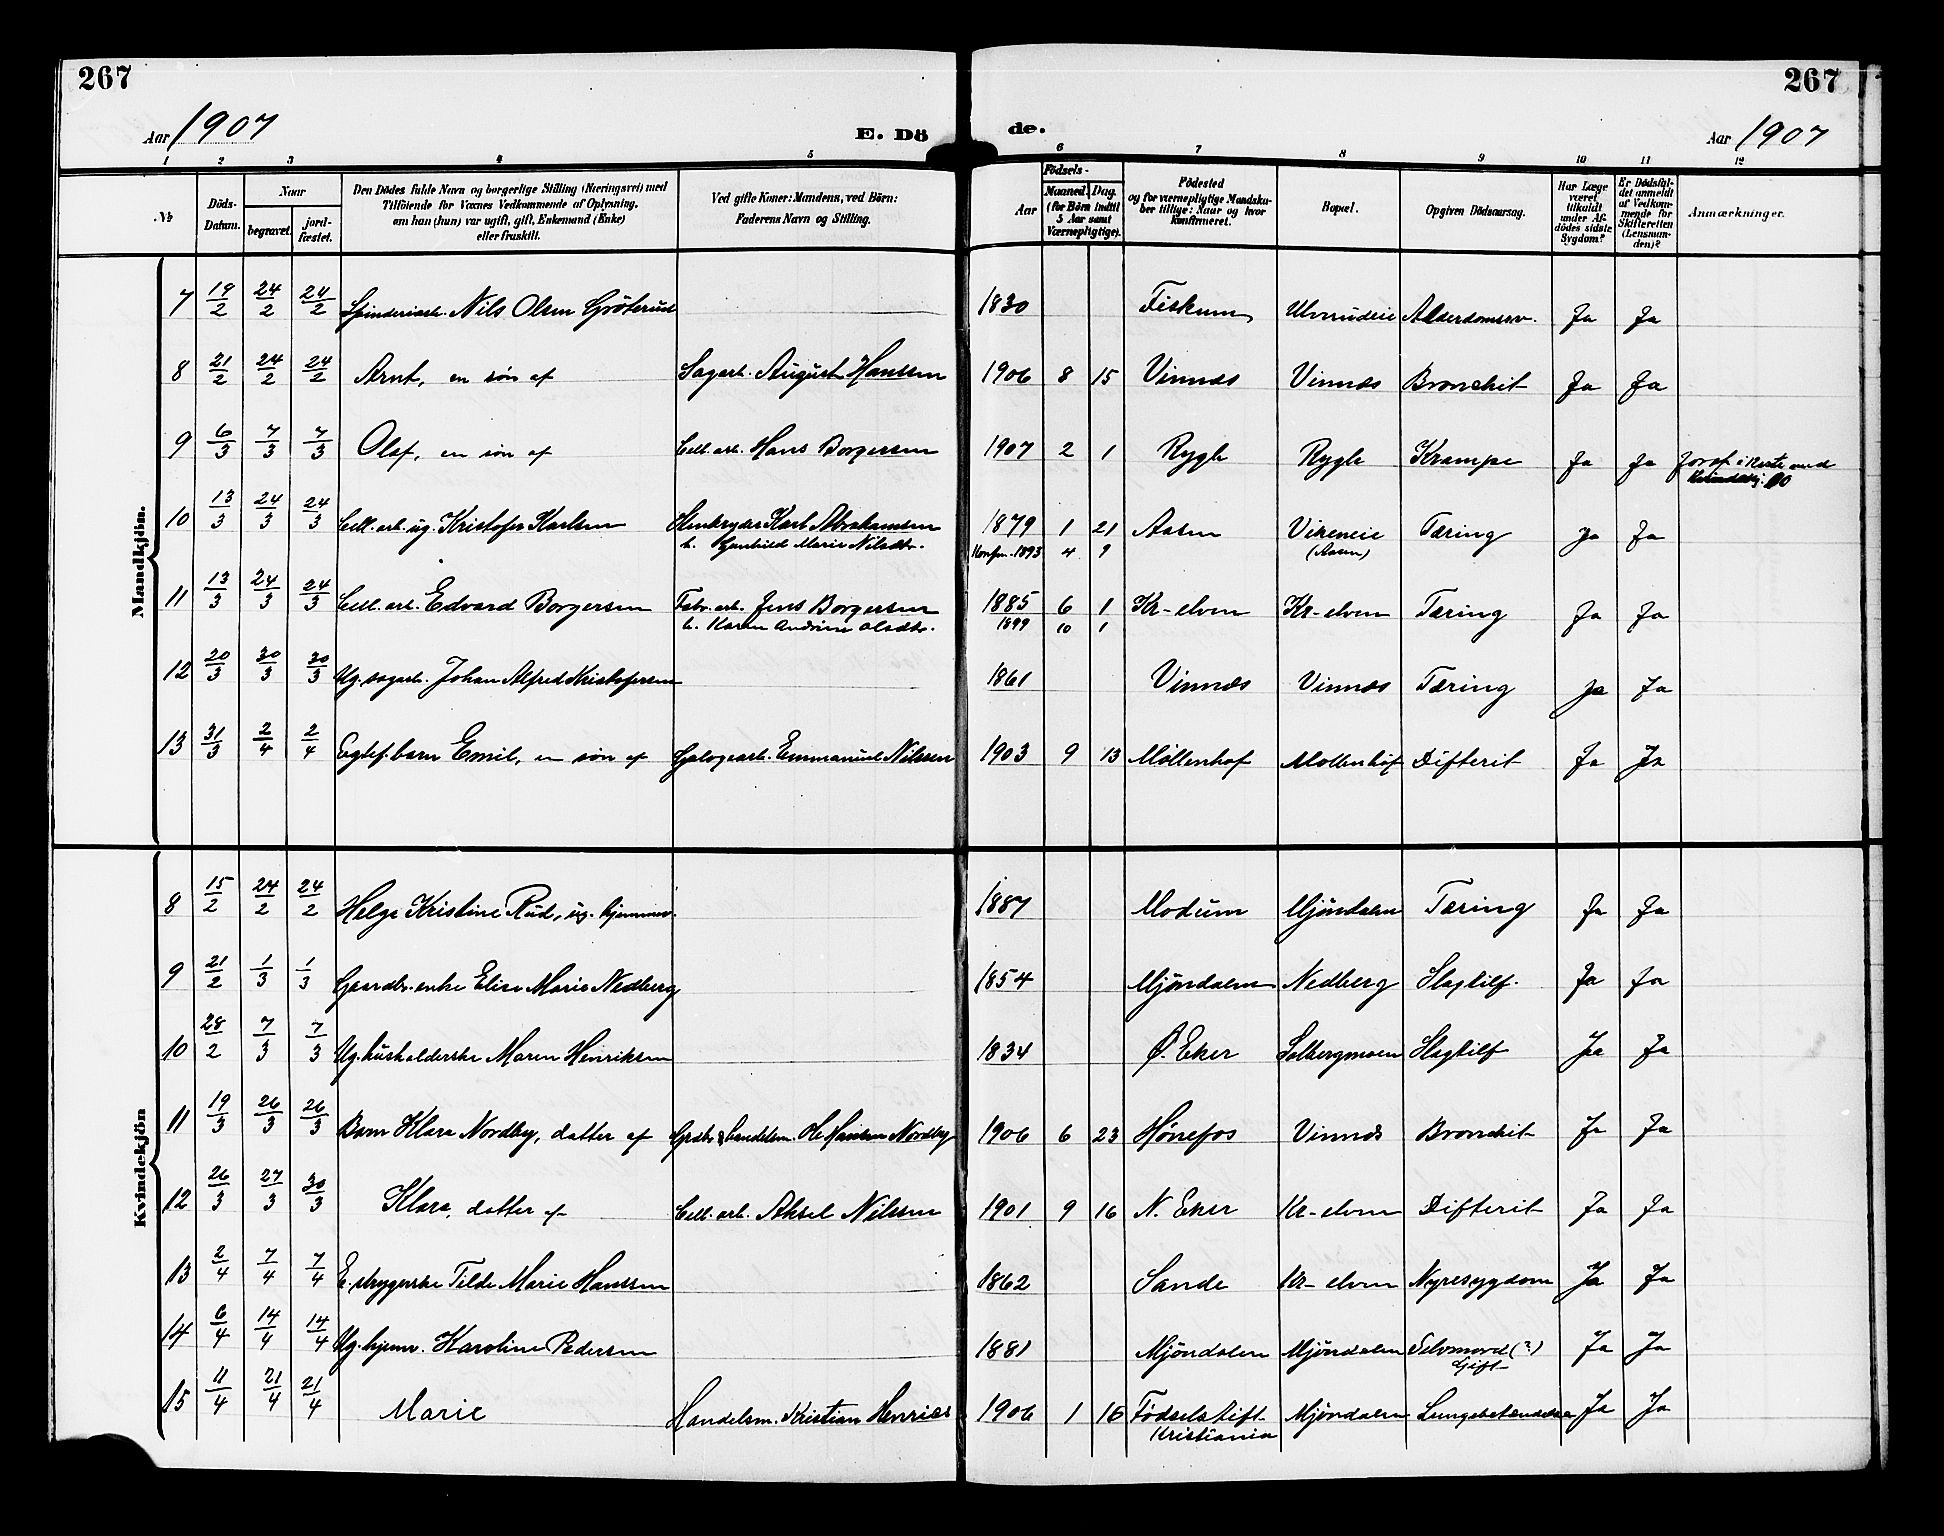 267
267
Aar 1907
E. Dö
de.
Aar 1907
1 2 3 4 5 6 7 8 9 10 11 12
№
Döds-Datum.
Naar
begravet.
jord-fæstet.
Den Dödes fulde Navn og borgerlige Stilling (Næringsvei) med
Tilföiende for Voxnes Vedkommende af Oplysning,
om han (hun) var ugift, gift, Enkemand (Enke)
eller fraskilt.
Ved gifte Koner: Mandens, ved Börn:
Faderens Navn og Stilling.
Födsels-
Aar
Maaned. Dag.
(for Börn indtil
5 Aar samt
Værnepligtige).
Födested
og for værnepligtige Mandsku-
ber tillige: Naar og hvor
konfirmeret.
Bopæl.
Opgiven Dödsaarsag.
Har Læge
været
tilkaldt
under Af-
dödes sidste
Sygdom?
Er Dödsfal-
det anmeldt
af Vedkom-
mende for
Skifteretten
(Lensman-
den)?
Anmærkninger.
Mandkjön.
7 19/2 24/2 24/2 Spinderiarb. Nils Olsen Gröterud 1830 Fiskum Ulverudeie Alderdomssv. Ja Ja
8 21/2 24/2 24/2 Arnt, en sön af Sagarb. August Hanssen 1906 8 15 Vinnæs Vinnæs Bronchit Ja Ja
9 6/3 7/3 7/3 Olaf, en sön af Cell. arb. Hans Borgersen 1907 2 1 Rygh Rygh Krampe Ja Ja
10 13/3 24/3 24/3 Cell. arb. ug. Kristofer Karlsen Stenbryder Karl Abrahamsen 1879 1 21 Aasen Vikeneie Tæring Ja Ja
h. Gunhild Marie Nilsdtr. Konfm. 1893 4 9 (Aasen)
11 13/3 24/3 24/3 Cell. arb. Edvard Borgersen Fabr. arb. Jens Borgersen 1885 6 1 Kr-elven Kr-elven Tæring Ja Ja
h. Karen Andrine Olsdtr. 1899 10 1
12 20/3 30/3 30/3 Ug. sagarb. Johan Alfred Kristofersen 1861 Vinnæs Vinnæs Tæring Ja Ja
13 31/3 2/4 2/4 Egtef. barn Emil, en sön af Galogearb. Emmanuel Nilssen 1903 9 13 Möllenhof Möllenhof Difterit Ja Ja
Kvindekjön
8 15/2 24/2 24/2 Helge Kristine Rud, ug. hjemmev. 1887 Modum Mjöndalen Tæring Ja Ja
9 21/2 1/3 1/3 Gaardbr. enke Elise Marie Nedberg 1854 Mjöndalen Nedberg Slagtilf. Ja Ja
10 28/2 7/3 7/3 Ug. husholderske Maren Henriksen 1834 Ø. Eker Solbergmoen Slagtilf Ja Ja
11 19/3 26/3 26/3 Barn Klara Nordby, datter af Grdbr & handelsm. Ole Hansen Nordby 1906 6 23 Hönefos Vinnæs Bronchit Ja Ja
12 26/3 27/3 30/3 Klara, datter af Cell. arb. Aksel Nilssen 1901 9 16 N. Eker Kr-elven Difterit Ja Ja
13 2/4 7/4 7/4 E. strygerske Tilde Marie Hanssen 1862 Sande Kr-elven Nyresygdom Ja Ja
14 6/4 14/4 14/4 Ug. hjemv. Karoline Pedersen 1881 Mjöndalen Mjöndalen Selvmord (?) Ja Ja
Gift
15 11/4 21/4 21/4 Marie Handelsm. Kristian Henries 1906 1 16 Födselsstift. Mjöndalen Lungebetændelse Ja Ja
Kristiania